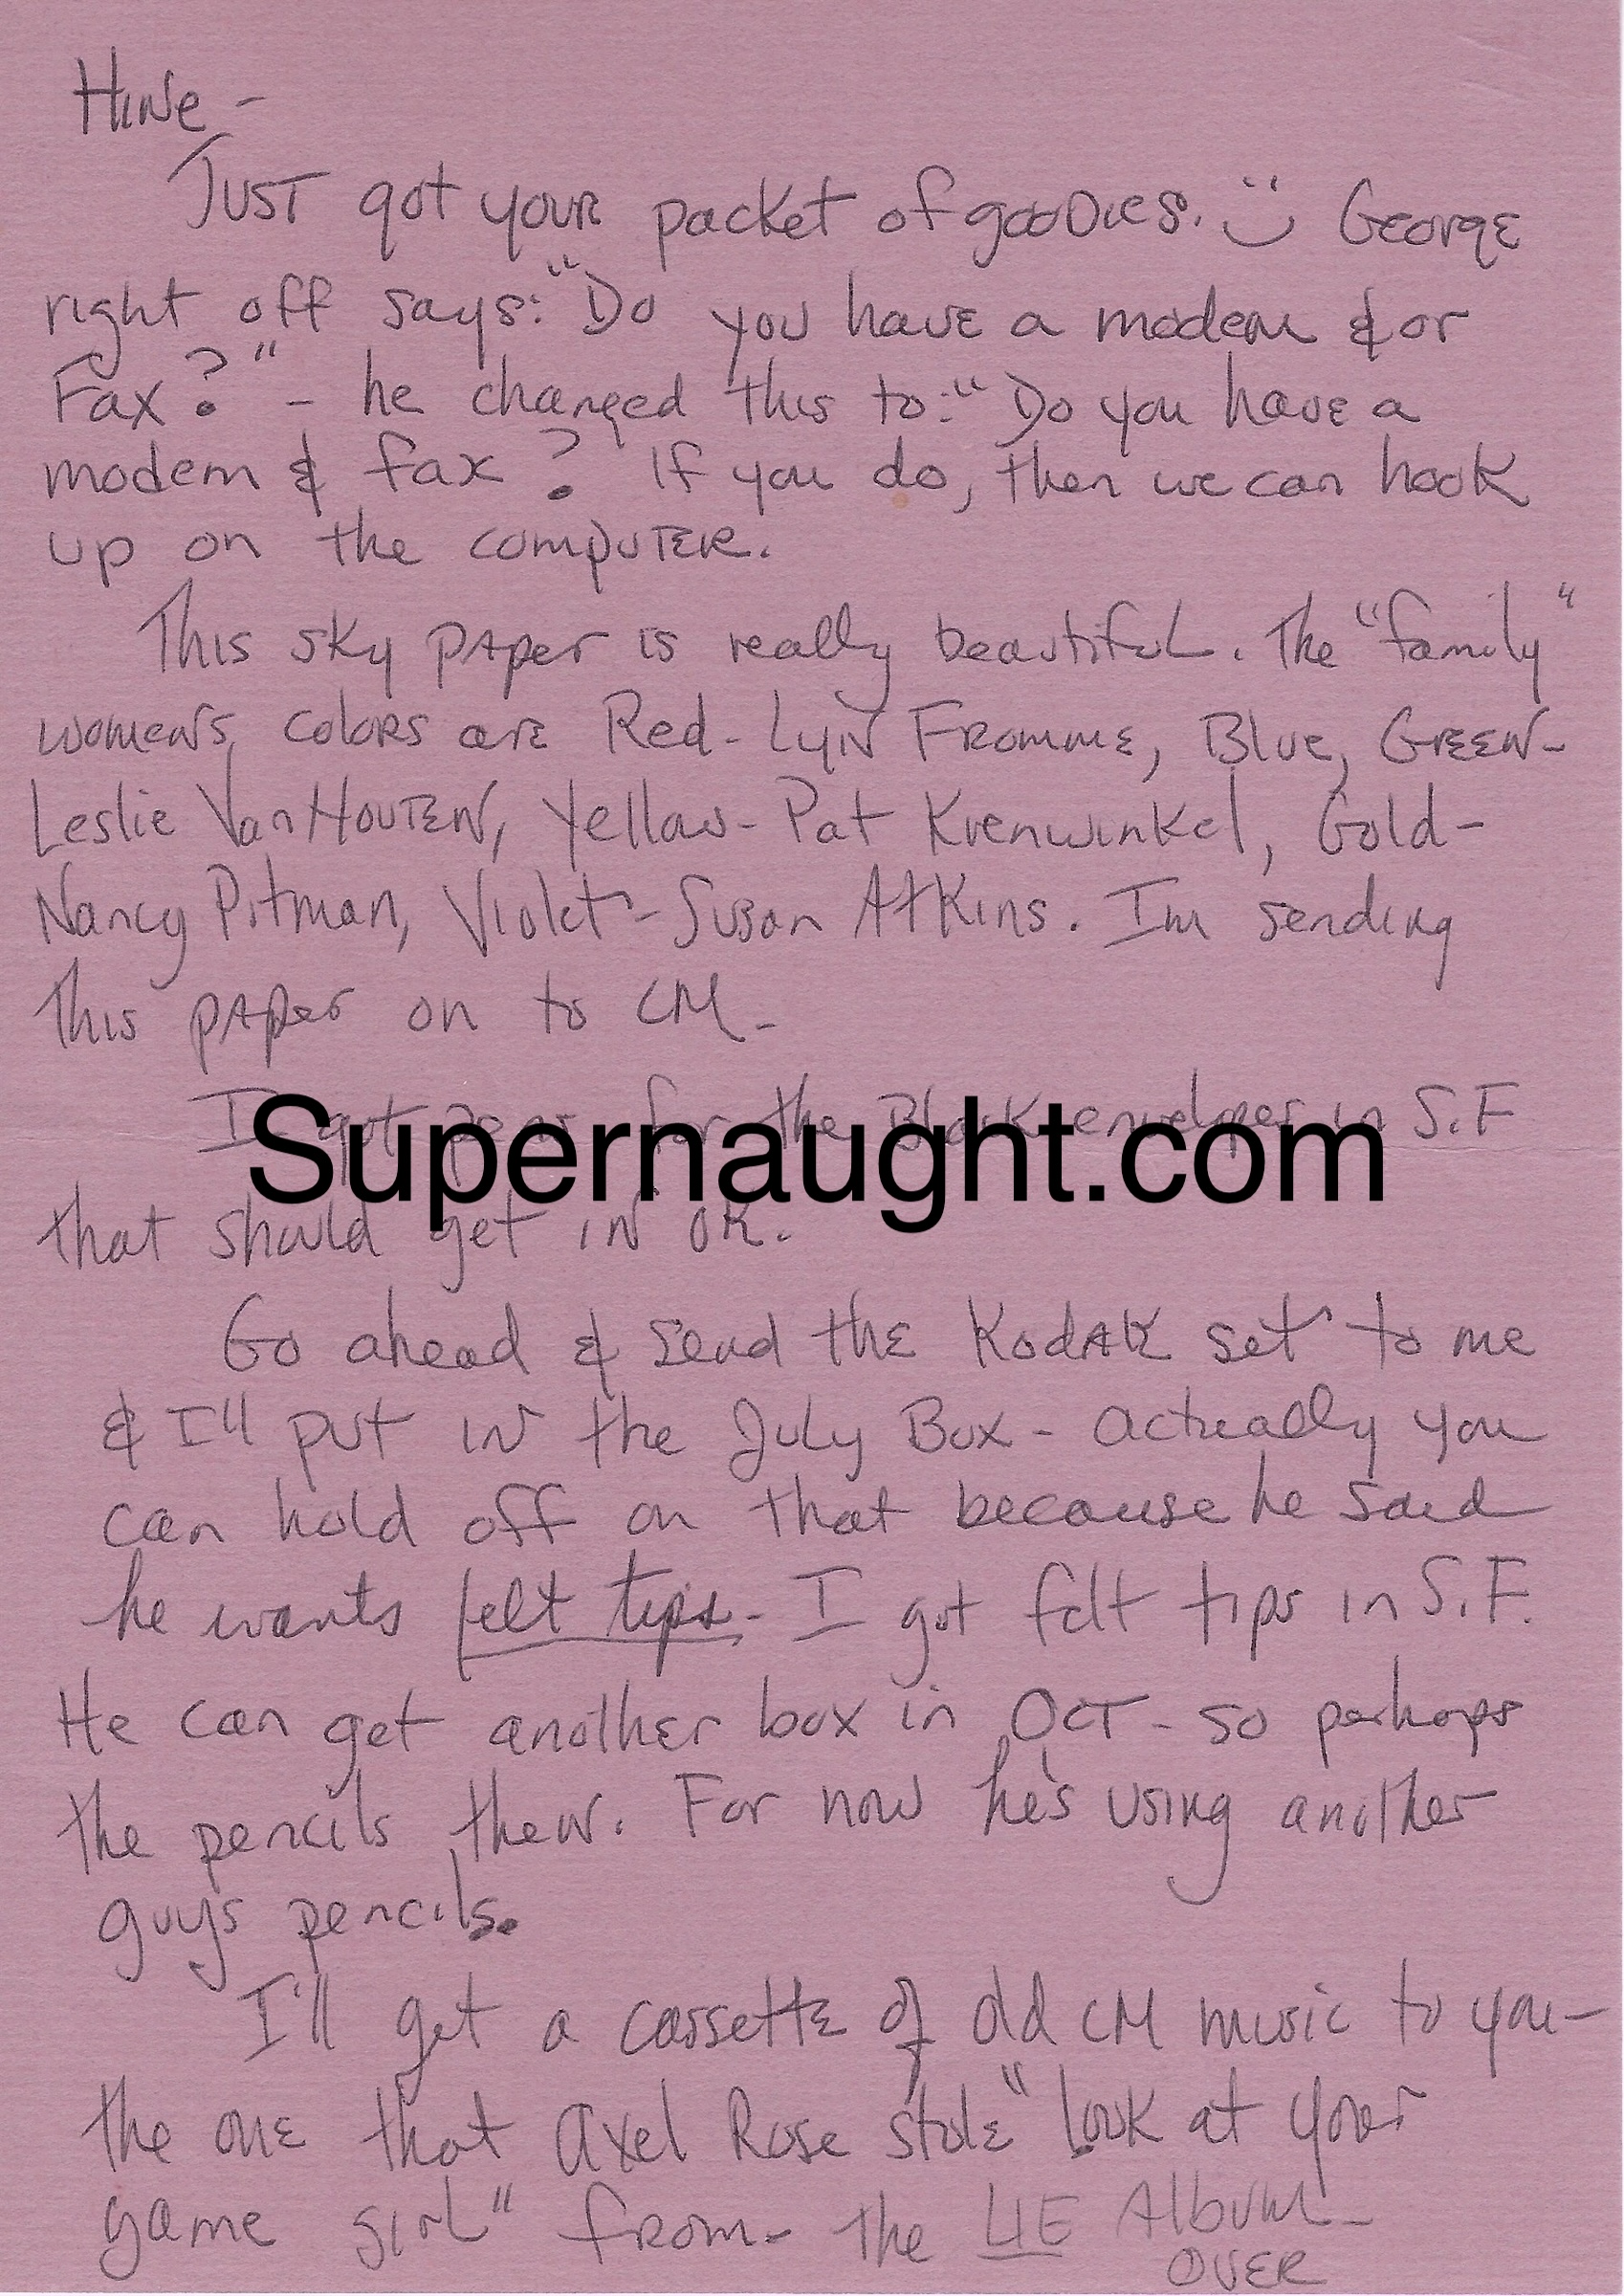 Hine -
Just got your packet of goodies. George
right off says: "Do you have a modem & or
Fax?" - he changed this to: "Do you have a
modem & fax? If you do, then we can hook
up on the computer.
This sky paper is really beautiful. The "family"
womens colors are Red - Lyn Fromme, Blue, Green -
Leslie Van Houten, Yellow - Pat Krenwinkel, Gold -
Nancy Pitman, Violet - Susan Atkins. Im sending
this paper on to CM -
I got pens for the Black envelopes in S.F
Supernaught.com
that should get in OK.
Go ahead & send the Kodak set to me
& I'll put in the July Box - actually you
can hold off on that because he said
he wants felt tips - I got felt tips in S.F.
He can get another box in Oct - so perhaps
the pencils then. For now he's using another
guys pencils.
I'll get a cassette of old CM music to you -
the one that Axel Rose stole "look at your
game girl" from - the LIE Album -
OVER